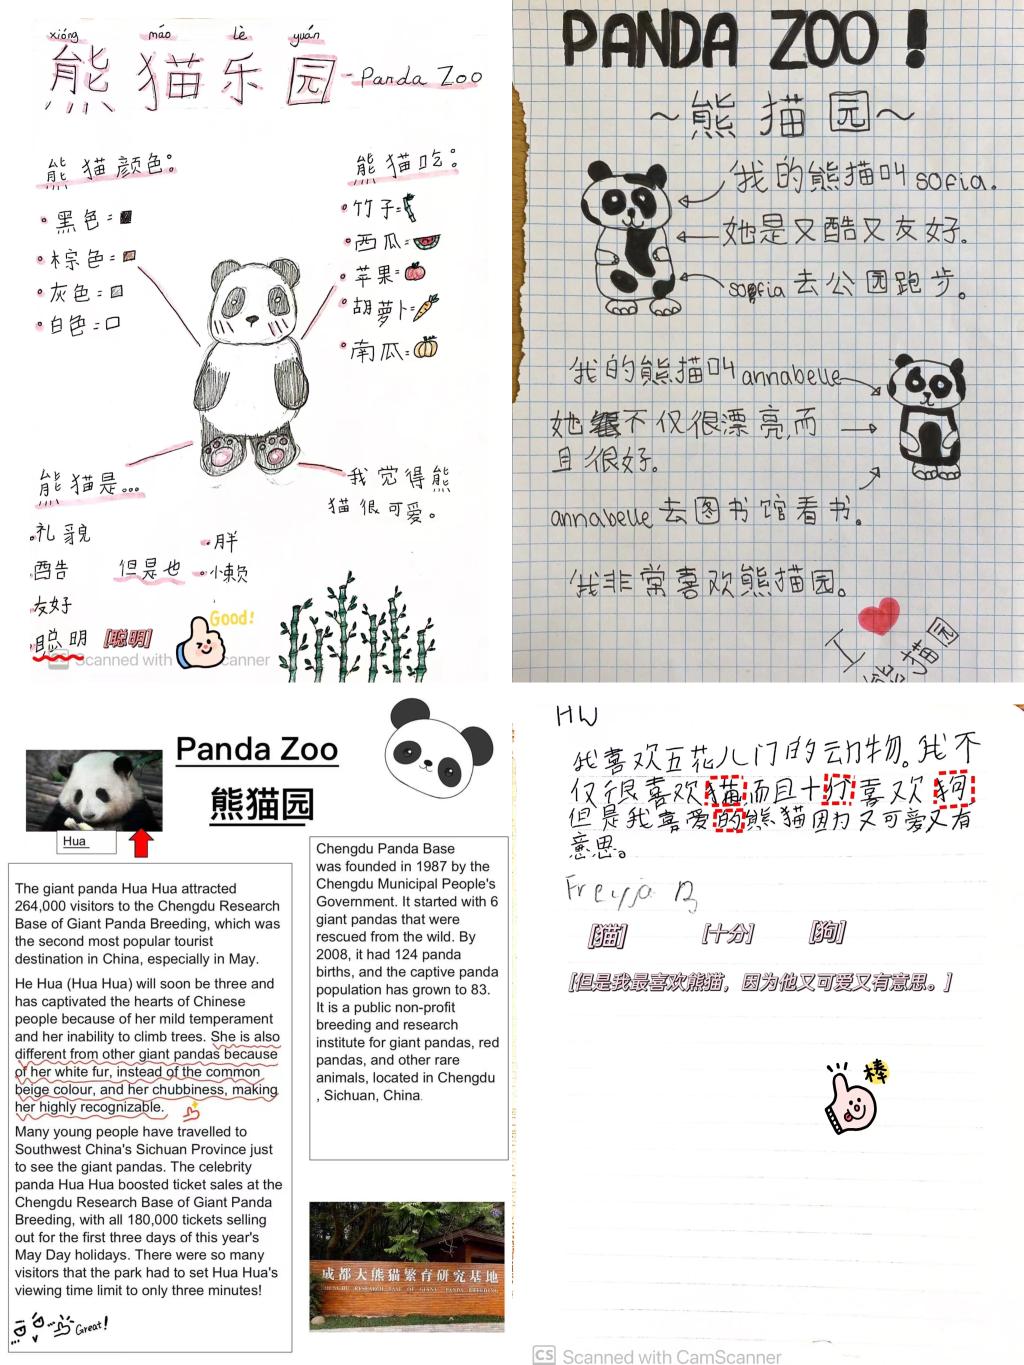 xióng māo lè yuán
熊猫乐园 - Panda Zoo
熊猫颜色:
黑色=
棕色=
灰色=
白色=
熊猫吃:
竹子=
西瓜=
苹果=
胡萝卜=
南瓜=
熊猫是...
礼貌
酷
友好
聪明
[聪明]
但是也
胖
懒
我觉得熊
猫很可爱。
Good!
Scanned with CamScanner
PANDA ZOO!
~熊猫园~
我的熊猫叫sofia.
她是又酷又友好.
sofia去公园跑步。
我的熊猫叫annabelle
她不仅很漂亮,而
且很好。
annabelle去图书馆看书。
我非常喜欢熊猫园。
I
熊猫园
Panda Zoo
熊猫园
Hua
The giant panda Hua Hua attracted
264,000 visitors to the Chengdu Research
Base of Giant Panda Breeding, which was
the second most popular tourist
destination in China, especially in May.
He Hua (Hua Hua) will soon be three and
has captivated the hearts of Chinese
people because of her mild temperament
and her inability to climb trees. She is also
different from other giant pandas because
of her white fur, instead of the common
beige colour, and her chubbiness, making
her highly recognizable.
Many young people have travelled to
Southwest China's Sichuan Province just
to see the giant pandas. The celebrity
panda Hua Hua boosted ticket sales at the
Chengdu Research Base of Giant Panda
Breeding, with all 180,000 tickets selling
out for the first three days of this year's
May Day holidays. There were so many
visitors that the park had to set Hua Hua's
viewing time limit to only three minutes!
Great!
Chengdu Panda Base
was founded in 1987 by the
Chengdu Municipal People's
Government. It started with 6
giant pandas that were
rescued from the wild. By
2008, it had 124 panda
births, and the captive panda
population has grown to 83.
It is a public non-profit
breeding and research
institute for giant pandas, red
pandas, and other rare
animals, located in Chengdu
, Sichuan, China.
成都大熊猫繁育研究基地
CHENGDU RESEARCH BASE OF GIANT PANDA BREEDING
HW
我喜欢五花八门的动物。我不
仅很喜欢猫,而且十分喜欢狗,
但是我喜爱的熊猫因为又可爱又有
意思。
Freyja B
[猫] [十分] [狗]
[但是我最喜欢熊猫，因为他又可爱又有意思。]
棒
CS Scanned with CamScanner